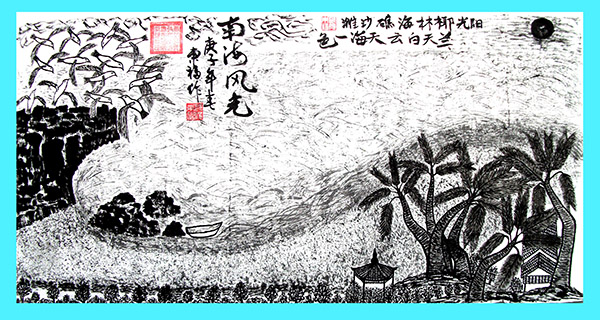 阳光椰林海礁沙滩
兰天白云天海一色
南海风光
庚子年
福作